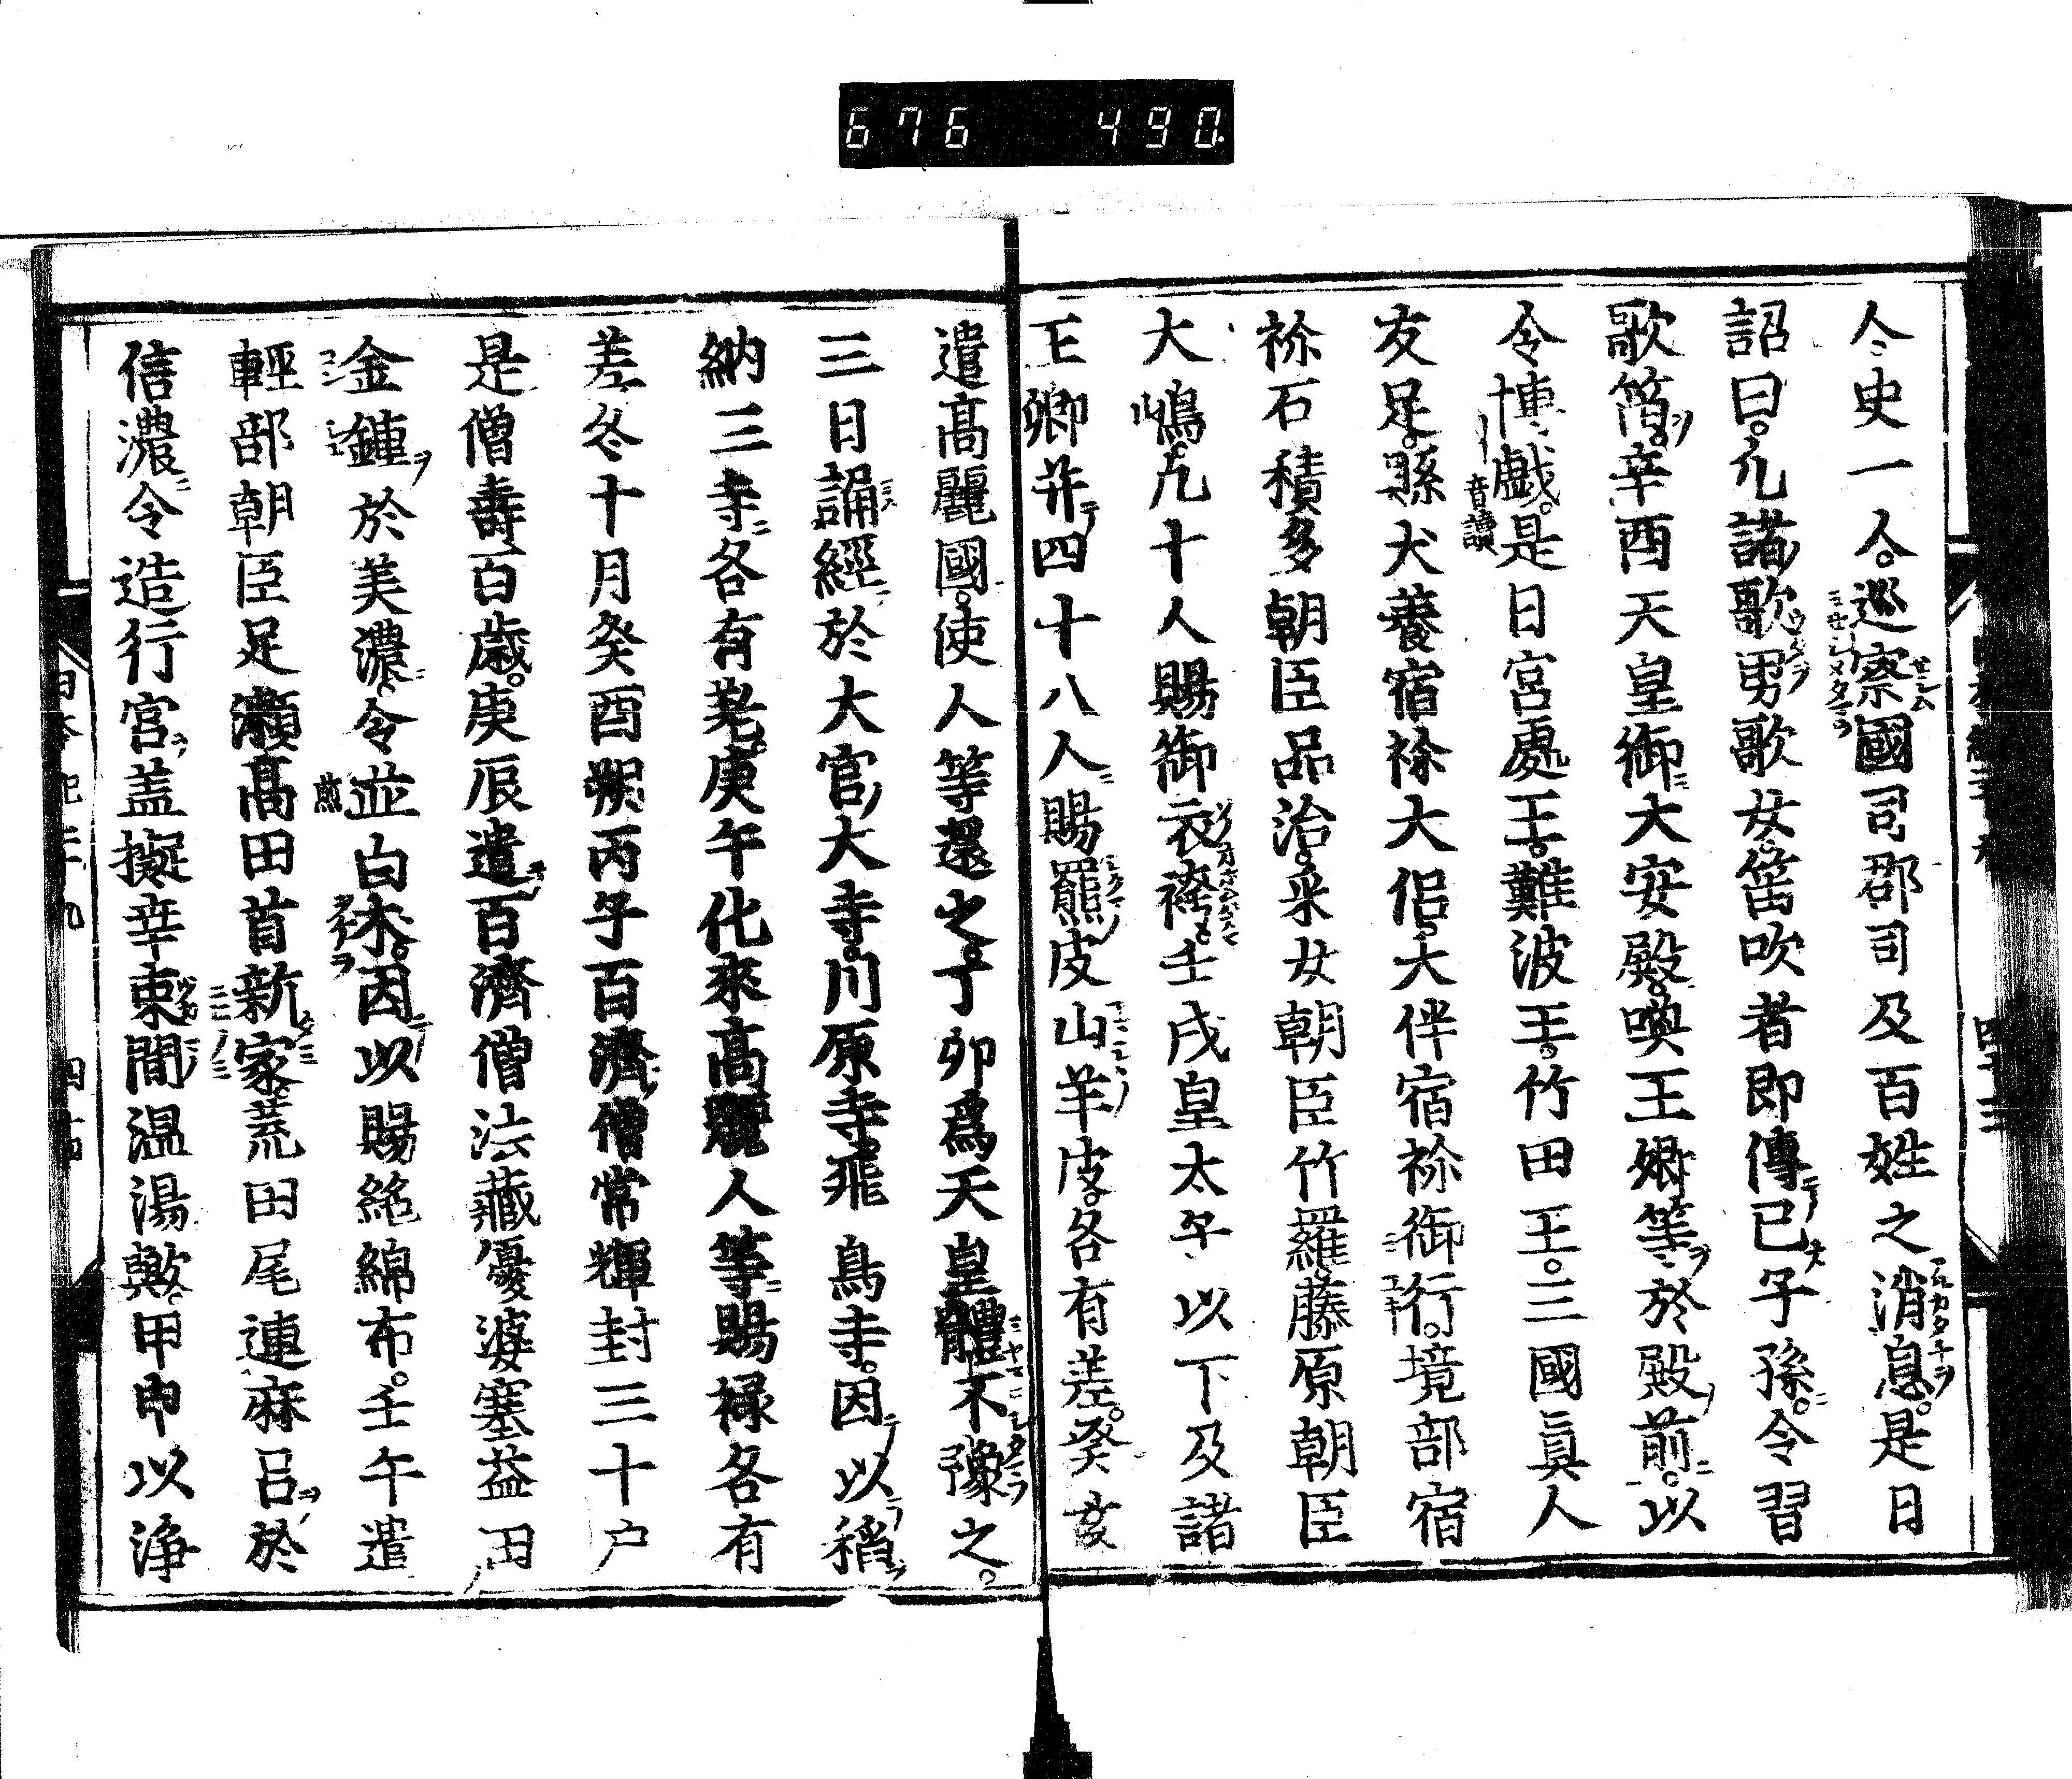 676 490.
人史一人。巡察國司郡司及百姓之消息。是日
詔曰。凢諸歌男歌女。笛吹者即傳己子孫。令習
歌笛。辛酉天皇御大安殿。喚王卿等於殿前。以
令博戯。是日宮處王。難波王。竹田王。三國眞人
音讀
友足。縣犬養宿祢大侶。大伴宿祢御行。境部宿
祢石積多朝臣品治。采女朝臣竹羅。藤原朝臣
大嶋。凢十人賜御衣袴。壬戌皇太子以下及諸
王卿并四十八人賜羆皮山羊皮。各有差。癸亥
遣髙麗國。使人等還之。丁卯爲天皇體不豫之。
三日誦經於大官大寺。川原寺。飛鳥寺。因以稻
納三寺各有差。庚午化來髙麗人等賜禄各有
差。冬十月癸酉朔丙子百濟僧常輝封三十户
是僧壽百歳。庚辰遣百濟僧法藏優婆塞益田
金鍾於美濃。令並白朮。因以賜絁綿布。壬午遣
煎
輕部朝臣足瀬髙田首新家。荒田尾連麻呂於
信濃令造行宮。盖擬幸束間温湯歟。甲申以淨